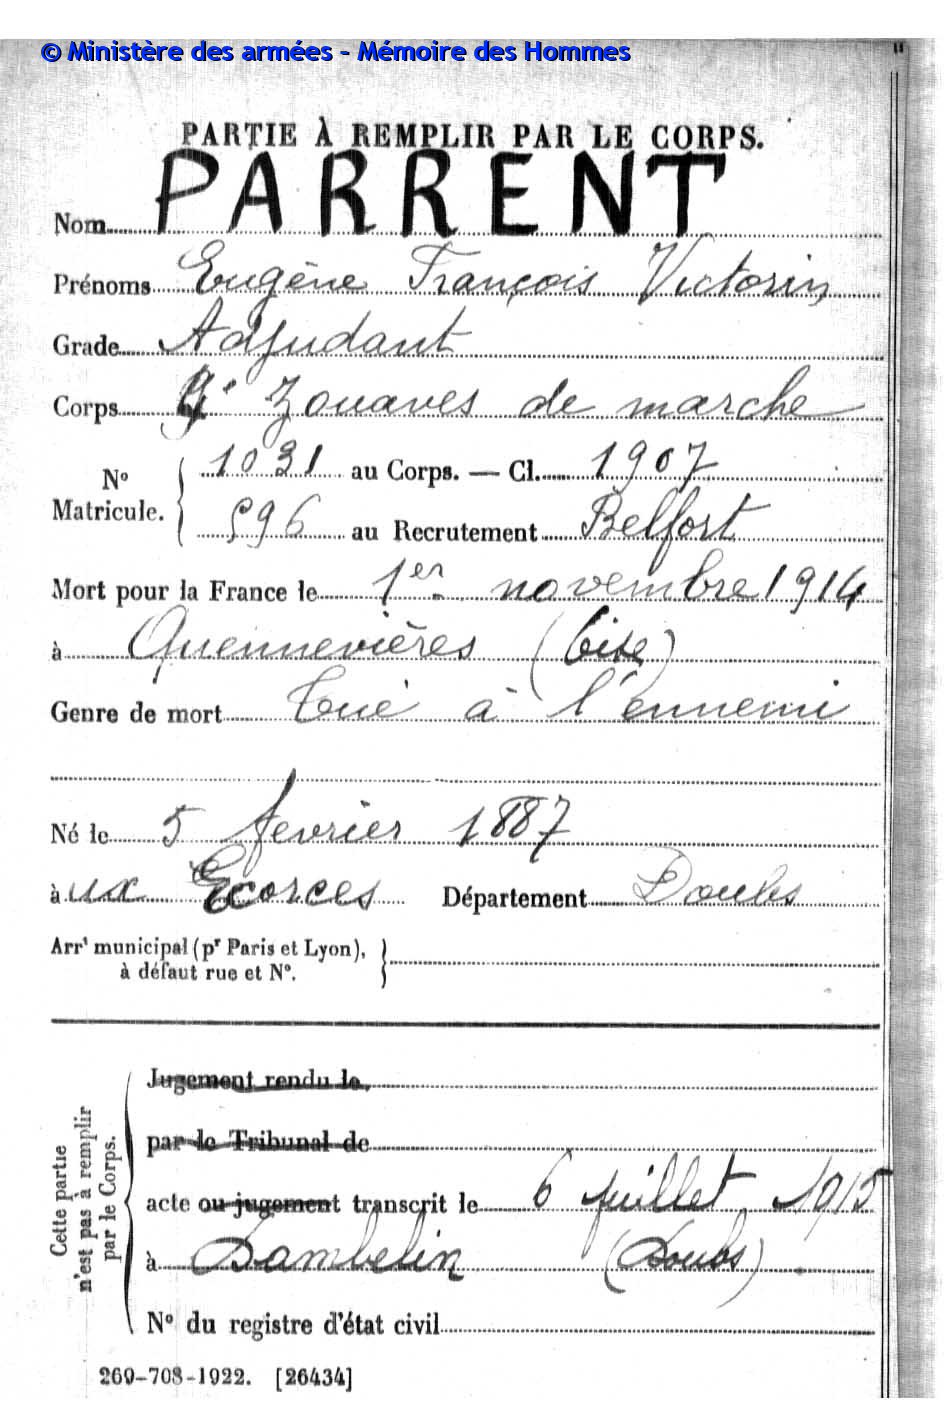 © Ministère des armées - Mémoire des Hommes
PARTIE À REMPLIR PAR LE CORPS.
Nom PARRENT
Prénoms Eugène François Victorin
Grade Adjudant
Corps Zouaves de marche
N° Matricule. 1031 au Corps. — Cl. 1907
596 au Recrutement Belfort
Mort pour la France le 1er novembre 1914
à Quennevières (Oise)
Genre de mort Tué à l'ennemi
Né le 5 fevrier 1887
à ux Ecorces Département Doubs
Arrt municipal (pr Paris et Lyon),
à défaut rue et N°.
Cette partie
n'est pas à remplir
par le Corps.
Jugement rendu le
par le Tribunal de
acte ou jugement transcrit le 6 juillet 1915
à Dambelin (Doubs)
N° du registre d'état civil
269-708-1922. [26434]